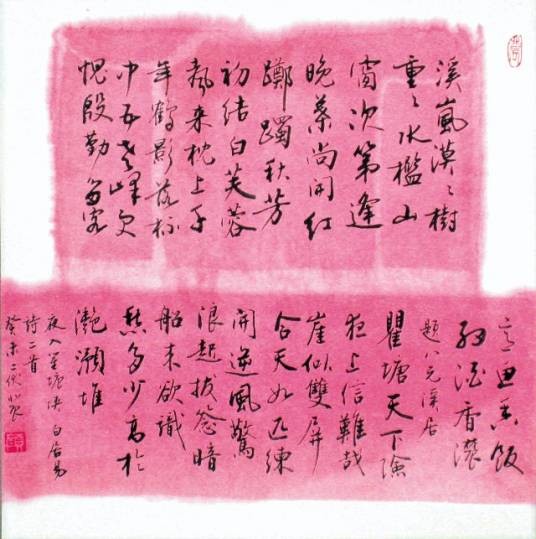 溪嵐漠々樹
重々水檻山
窗次第逢
晚葉尚開紅
躑躅秋芳
初結白芙蓉
聲来枕上千
年鶴影落杯
中五老峰更
愧殷勤留客
意魚鮮飯
細酒香濃
題八元溪居
瞿塘天下險
夜上信難哉
崖似雙屏
合天如匹練
開逆風驚
浪起拔菍暗
船来欲識
愁多少高於
灩澦堆
夜入瞿塘峡白居易
詩二首
癸未二伏